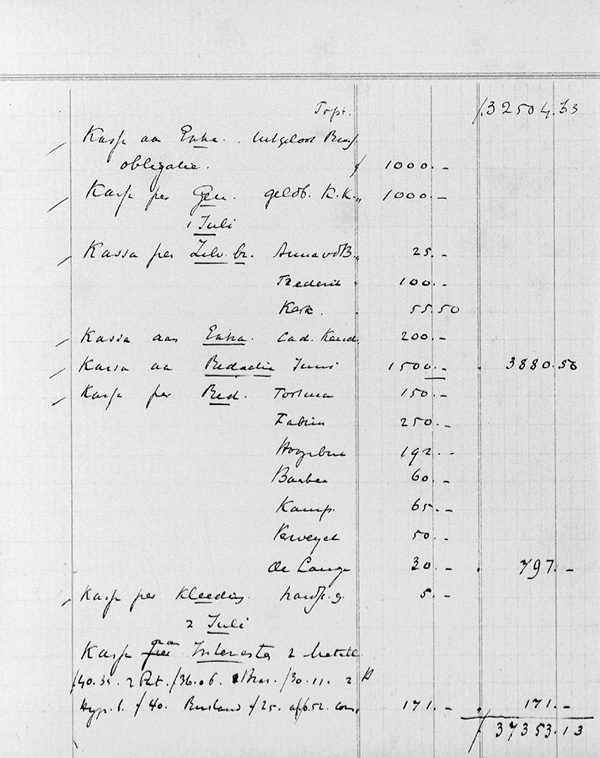 Tspt. ƒ 32504.63
Kassa aan Extra. Uitgeloot Bras.
obligatie. ƒ 1000.-
Kassa per Gen. geldb. K.K. „ 1000.-
1 Juli
Kassa per Zilv. br. Anna vdB. „ 25.-
Frederik „ 100.-
Kerk. 55.50
Kassa aan Extra. Cad. Kend. 200.-
Kassa aan Redactie Juni 1500.- „ 3880.50
Kassa per Red. 150.-
Fabius 250.-
192.-
60.-
Kamp. 65.-
Kerweyck 50.-
de Lange 30.- „ 797.-
Kassa per Kleeding. 5.-
2 Juli
Kassa aan Interesten 2 Metall
ƒ40.35. 2 Pct. ƒ36.06. Bras. ƒ30.11. 2
Hyp.b. ƒ40. Rusland ƒ25. 171.- „ 171.-
ƒ 37353.13